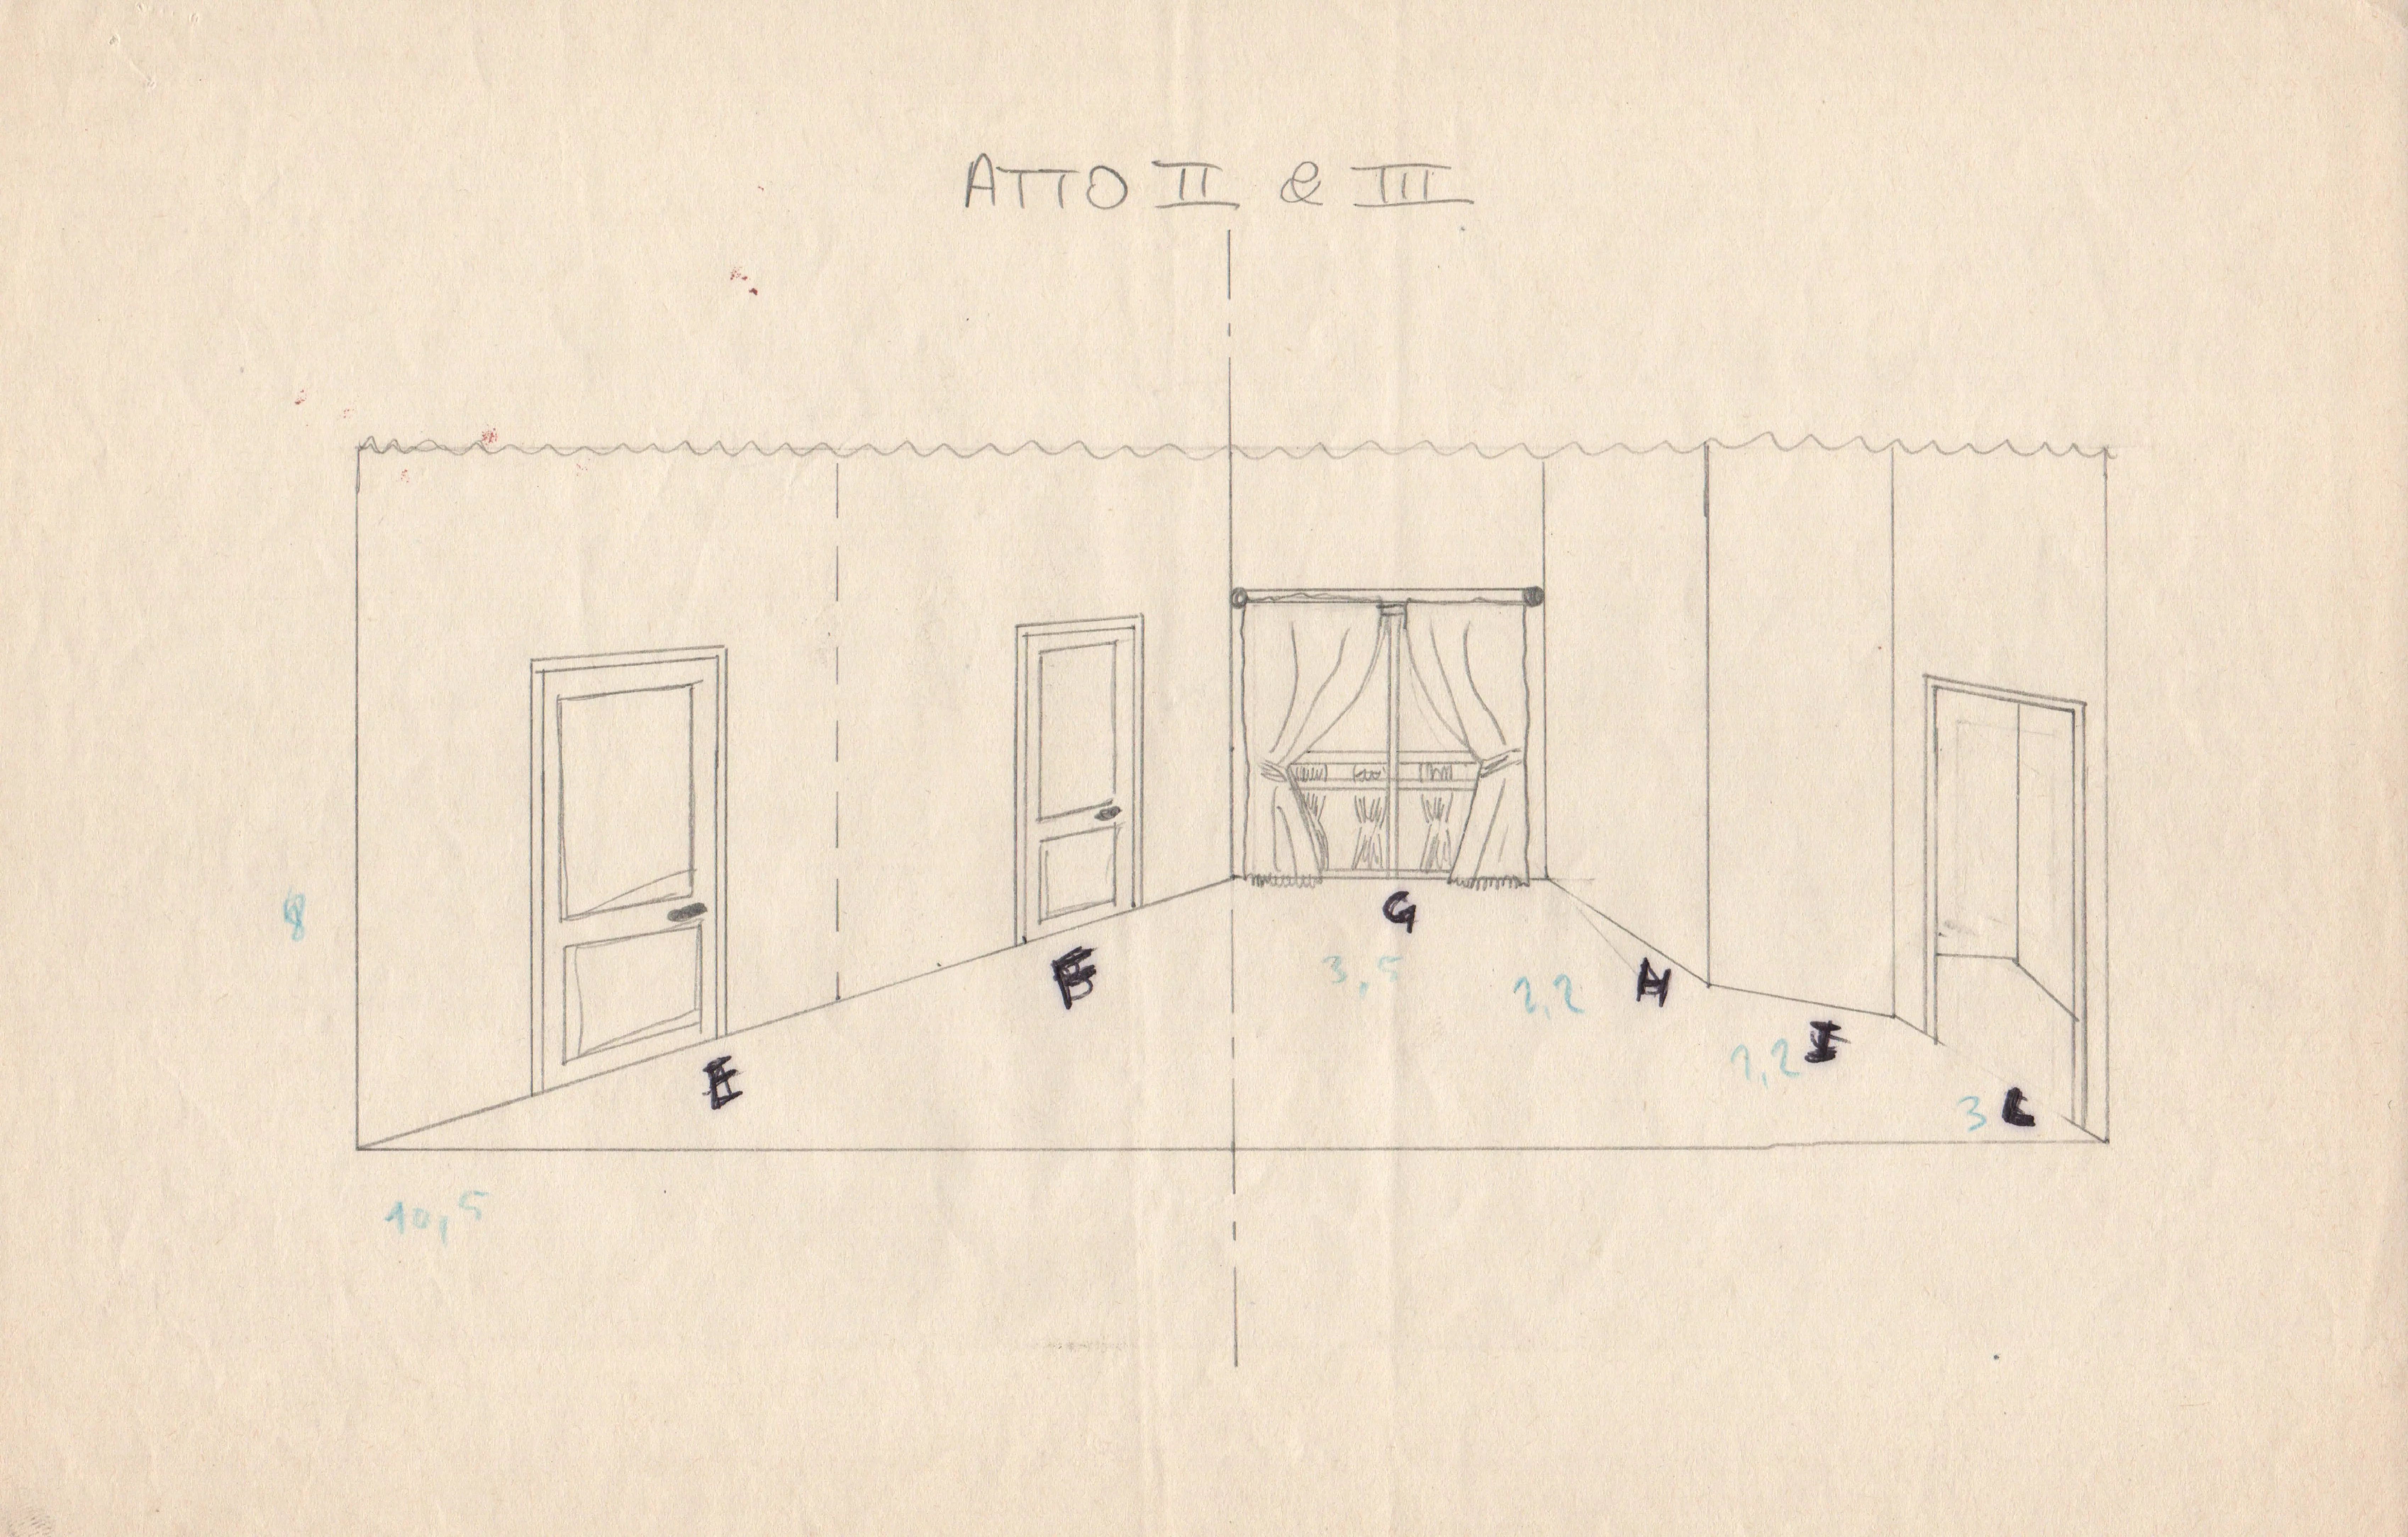 ATTO II & III
G
3,5
2,2
H
2,2
I
E
3
L
8
10,5